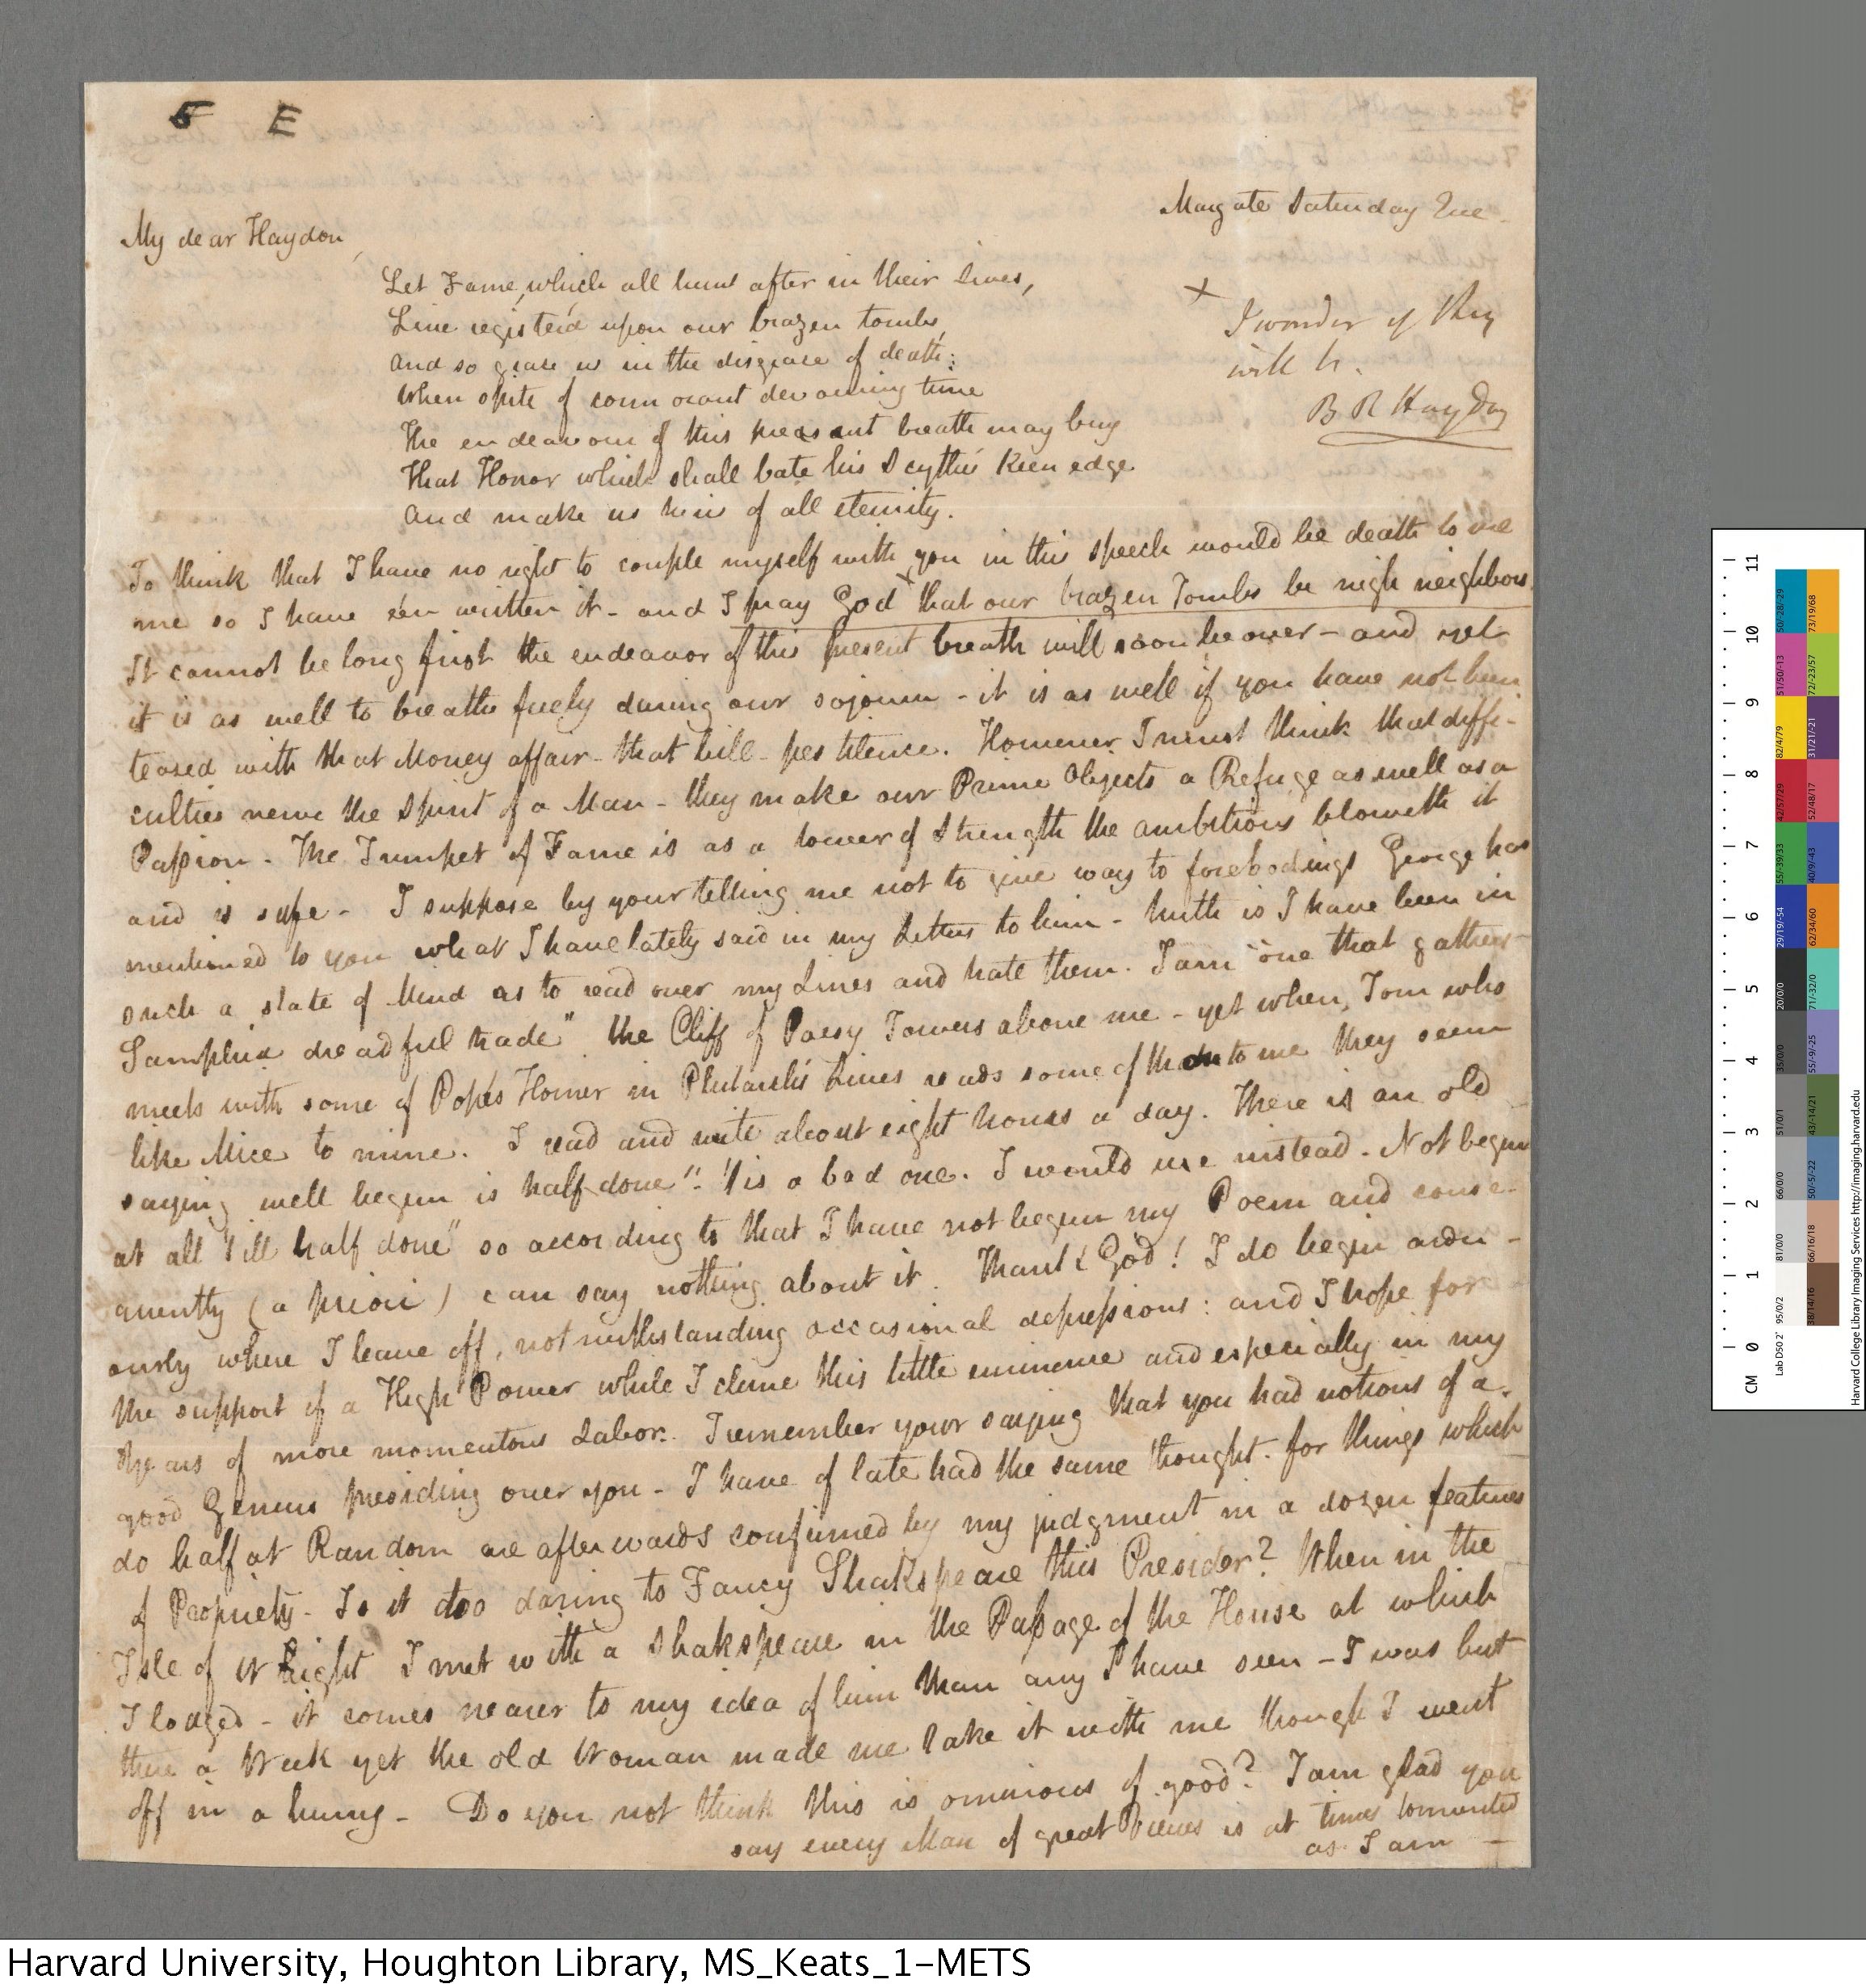 5 E
Margate Saturday Eve
My dear Haydon,
Let Fame, which all hunt after in their Lives,
Live register'd upon our brazen tombs,
and so grace us in the disgrace of death:
When spite of cormorant devouring time
The endeavour of this pres ent breath may buy
That Honor which shall bate his Scythe's keen edge
And make us heirs of all eternity.
+
I wonder if they
will be.
B R Haydon
To think that I have no right to couple myself with you in this speech would be death to me
me so I have e'en written it - and I pray God x that our brazen Tombs be nigh neighbors.
It cannot be long first the endeavor of this present breath will soon be over - and yet
it is as well to breathe freely during our sojourn - it is as well if you have not been
teased with that Money affair - that bill-pestilence. However I must think that diffi-
culties nerve the Spirit of a Man - they make our Prime Objects a Refuge as well as a
Passion. The Trumpet of Fame is as a tower of Strength the ambitious bloweth it
and is safe - I suppose by your telling me not to give way to forebodings George has
mentioned to you what I have lately said in my Letters to him - truth is I have been in
such a state of Mind as to read over my Lines and hate them. I am "one that gathers
Samphire dreadful trade" the Cliff of Poesy Towers above me - yet when, Tom who
meets with some of Pope's Homer in Plutarch's Lives reads some of them to me they seem
like Mice to mine. I read and write about eight hours a day. There is an old
saying well begun is half done" - 'tis a bad one. I would use instead - Not begun
at all 'till half done" so according to that I have not begun my Poem and conse-
quently (a priori) can say nothing about it. Thank God! I do begin ardu-
ously where I leave off, notwithstanding occasional depressions: and I hope for
the support of a High Power while I clime this little eminence and especially in my
Years of more momentous Labor. I remember your saying that you had notions of a
good Genius presiding over you - I have of late had the same thought. for things which
do half at Random are afterwards confirmed by my judgment in a dozen features
of Propriety - Is it too daring to Fancy Shakspeare this Presider? When in the
Isle of Wright I met with a Shakspeare in the Passage of the House at which
I lodged - it comes nearer to my idea of him than any I have seen - I was but
there a Week yet the old Woman made me take it with me though I went
off in a hurry - Do you not think this is ominous of good? I am glad you
say every Man of great Views is at times tormented
as I am -
Harvard University, Houghton Library, MS_Keats_1-METS
CM 0 1 2 3 4 5 6 7 8 9 10 11
Harvard College Library Imaging Services http://imaging.harvard.edu